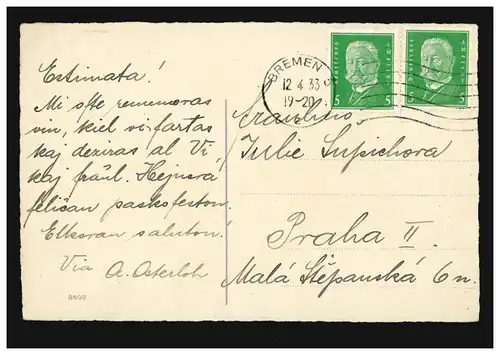 Estimata!
Mi ofte rememoras
vin, kiel vi fartas
kaj deziras al Vi
kaj fraŭl. Hejnová
feliĉan paskofeston.
Elkoran saluton!
Via A. Osterloh
8600
BREMEN 5
12 4 33
19-20
5 5
5 5
Fraŭlino
Julie Šupichova
Praha II
Malá Štěpanská 6 n.